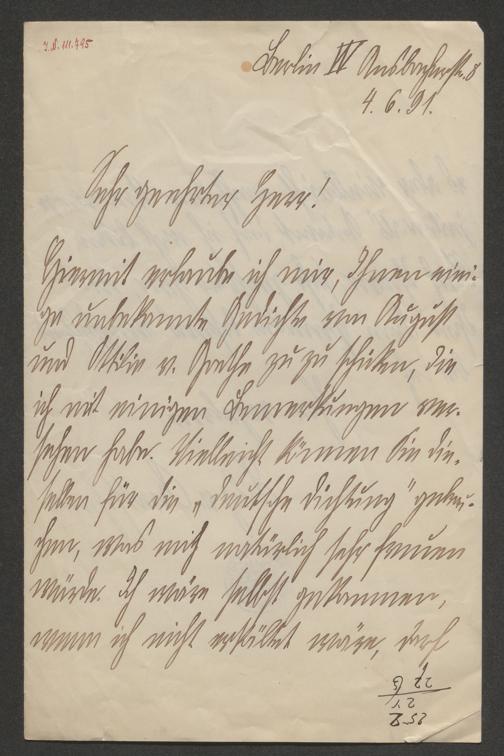 I.N. 111.495
Berlin W Ansbacherstr. 8
4. 6. 91.
Sehr geehrter Herr!
Hiermit erlaube ich mir, Ihnen eini-
ge unbekannte Gedichte von August
und Ottilie v. Goethe zu zu schicken, die
ich mit einigen Bemerkungen ver-
sehen habe. Vielleicht können Sie die-
selben für die „Deutsche Dichtung" gebrau-
chen, was mich natürlich sehr freuen
würde. Ich wäre selbst gekommen,
wenn ich nicht erkältet wäre, doch